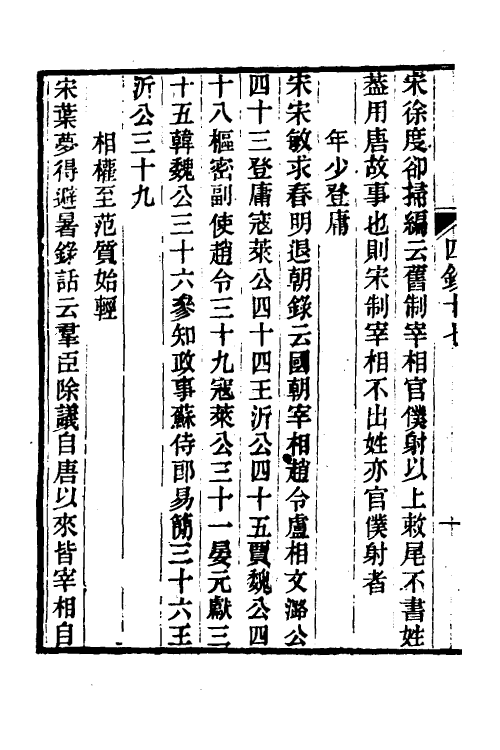 四錄十七
十
宋徐度卻掃編云舊制宰相官僕射以上敕尾不書姓
葢用唐故事也則宋制宰相不出姓亦官僕射者
年少登庸
宋宋敏求春明退朝錄云國朝宰相趙令盧相文潞公
四十三登庸寇萊公四十四王沂公四十五賈魏公四
十八樞密副使趙令三十九寇萊公三十一晏元獻三
十五韓魏公三十六參知政事蘇侍郎易簡三十六王
沂公三十九
相權至范質始輕
宋葉夢得避暑錄話云羣臣除議自唐以來皆宰相自